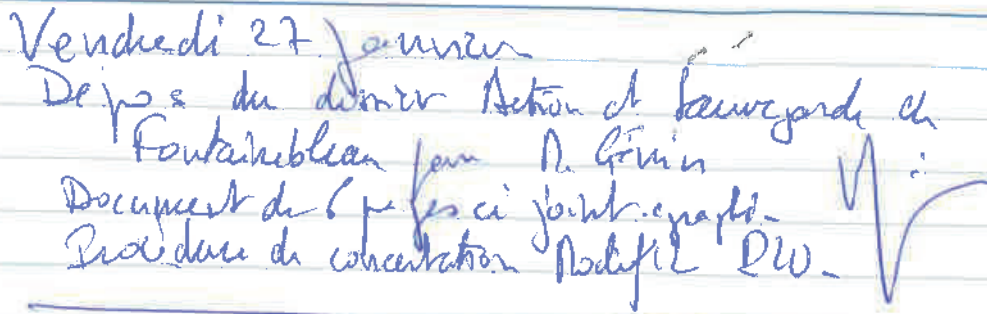 Vendredi 27 Janvier
Dépos du dossier Action et Sauvegarde de
Fontainebleau par M.
Document de 6 pages ci joint
Procédure de concertation Modif